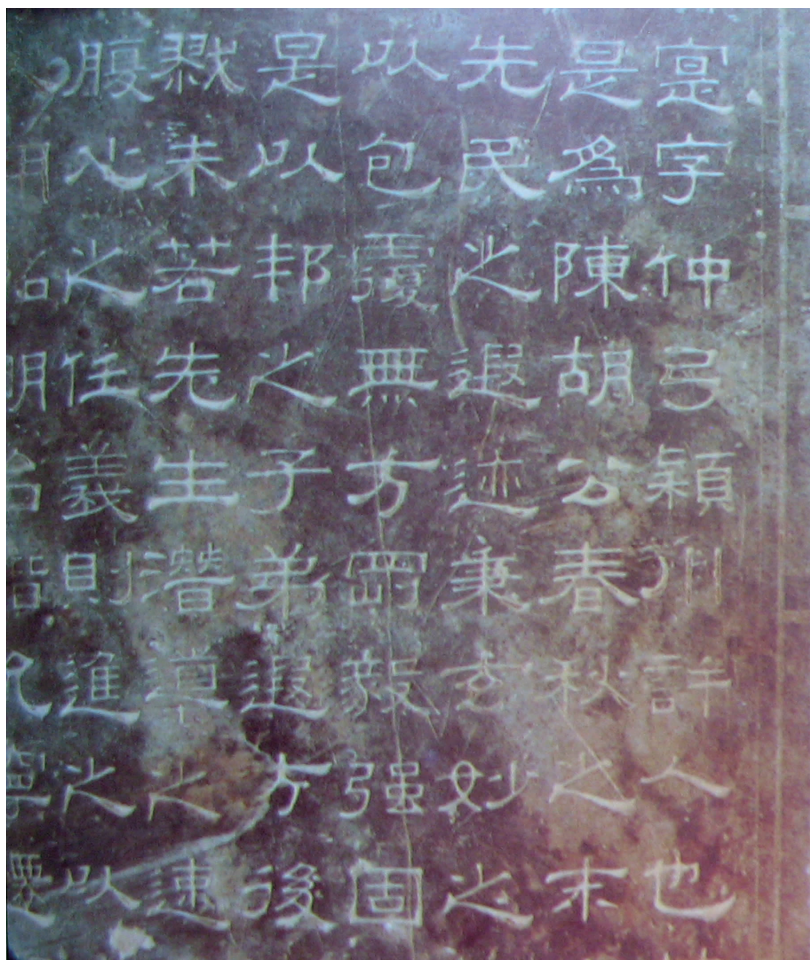 寔字仲弓潁川許人也
是為陳胡公春秋之末
先民之遐迹秉玄妙之
以包覆無方剛毅强固
是以邦之子弟遐方後
戮未若先生潛導之速
腹心之任義則進之以